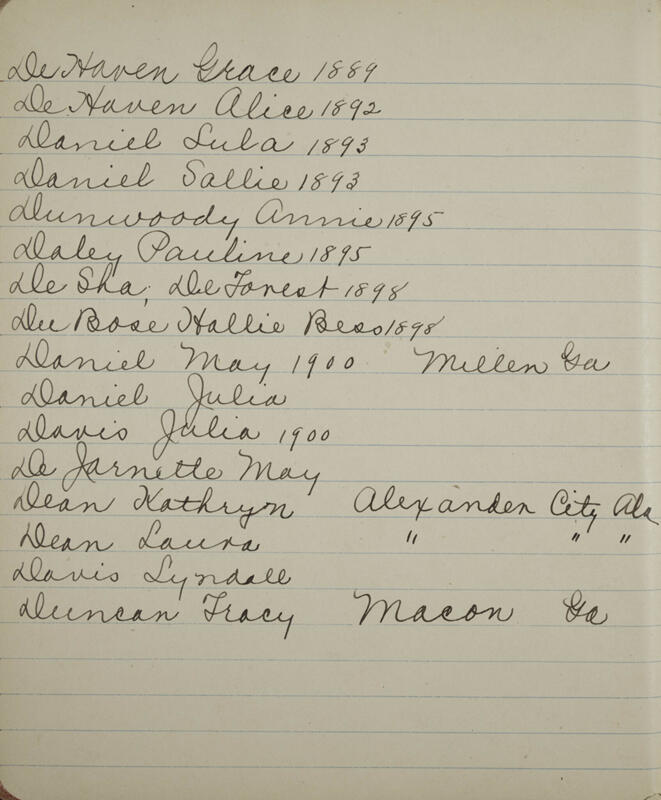 De Haven Grace 1889
De Haven Alice 1892
Daniel Lula 1893
Daniel Sallie 1893
Dunwoody Annie 1895
Daley Pauline 1895
De Sha, De Forest 1898
Du Bose Hallie Bess 1898
Daniel May 1900 Millen Ga
Daniel Julia
Davis Julia 1900
De Jarnette May
Dean Kathryn Alexander City Ala
Dean Laura " " "
Davis Lyndall
Duncan Tracy Macon Ga